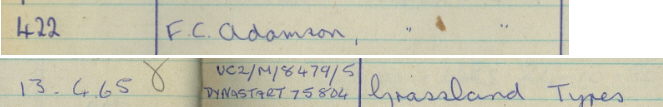 422 F.C. Adamson, " "
13.4.65 8 UC2/M/8479/5 Grassland Types
DYNASTART 75804